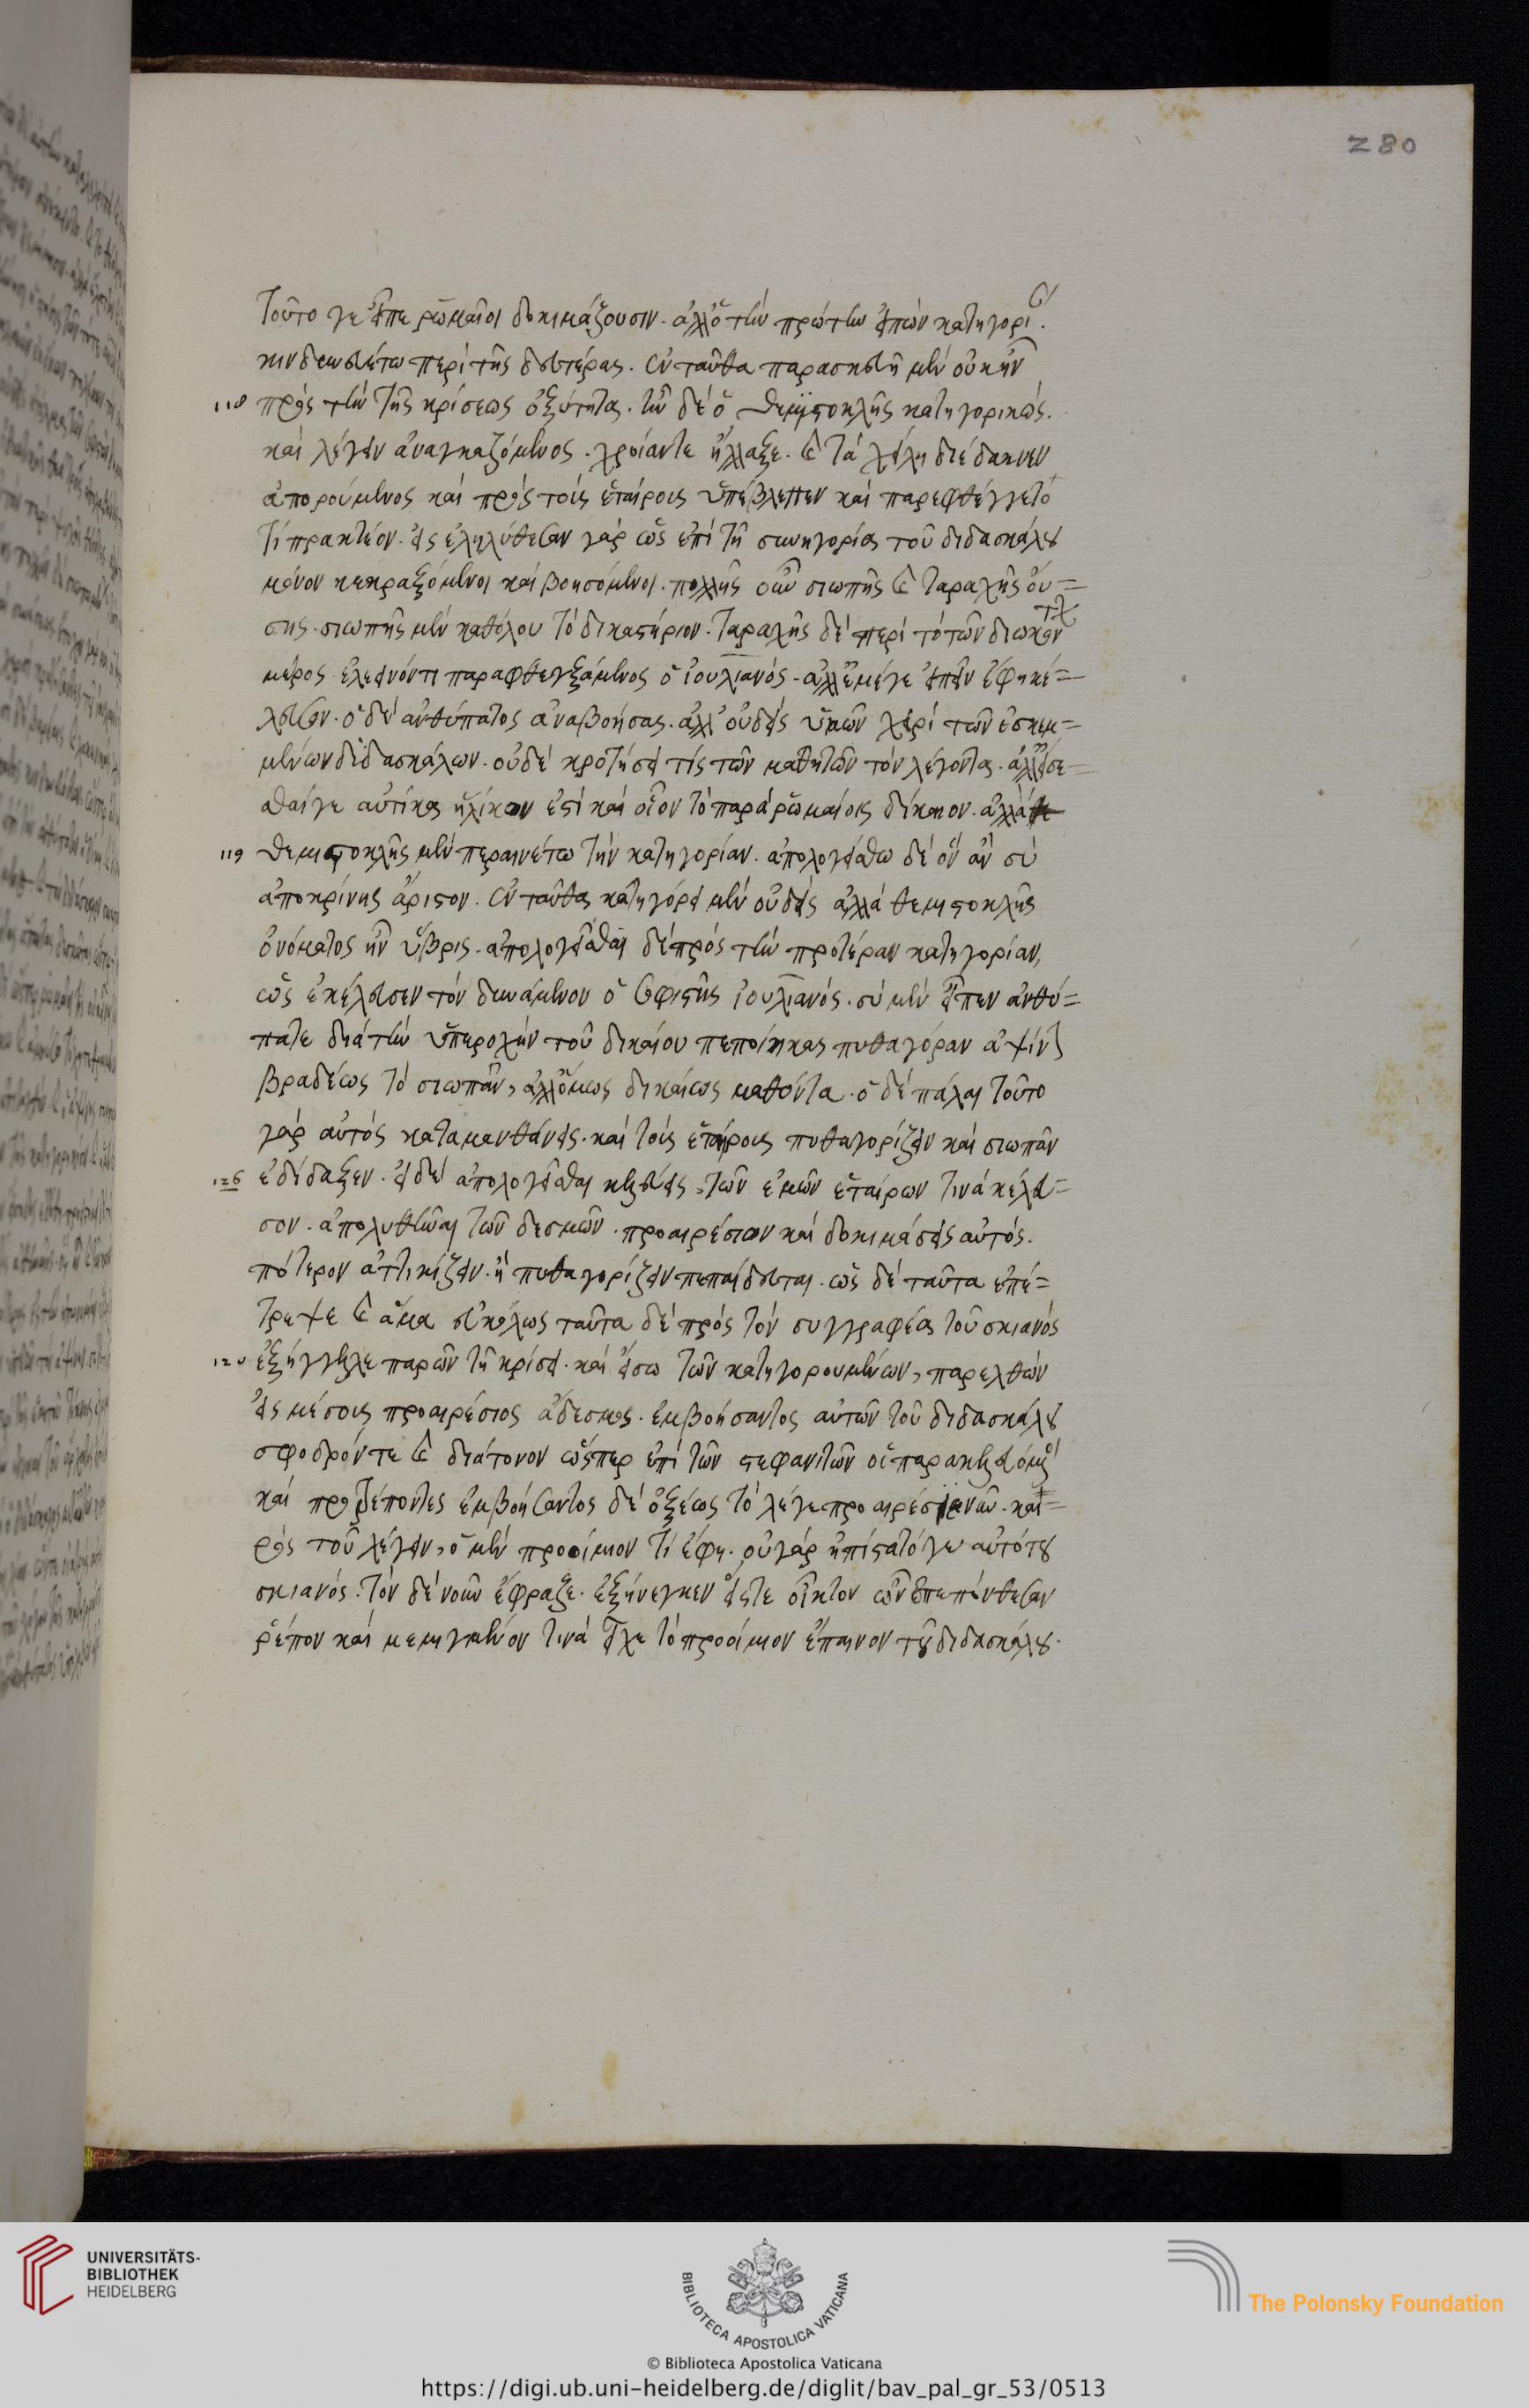 280
Τοῦτο γε εἶπε ῥωμαῖοι δοκιμάζουσιν. ἀλλ' ὁ τὴν πρώτην εἰπὼν κατηγορί
κινδυνευέτω περὶ τῆς δευτέρας. ἐνταῦθα παρασκευὴ μὲν οὐκ ἦν
118 πρὸς τὴν τῆς κρίσεως ὀξύτητα. ἦν δὲ ὁ θεμιστοκλῆς κατηγορικὸς.
καὶ λέγειν ἀναγκαζόμενος. χροίαντε ἤλλαξε. καὶ τὰ χείλη διέδακνεν
ἀπορούμενος καὶ πρὸς τοὺς ἑταίρους ὑπέβλεπεν καὶ παρεφθέγγετο
τί πρακτέον. εἰσεληλύθεσαν γὰρ ὡς ἐπὶ τῇ συνηγορίᾳ τοῦ διδασκάλου
μόνον κεκραξόμενοι καὶ βοησόμενοι. πολλῆς οὖν σιωπῆς καὶ ταραχῆς οὔ=
σης. σιωπῆς μὲν καθόλου τὸ δικαστήριον. ταραχῆς δὲ περὶ τὸ τῶν διωκόν
μέρος ἐλεεινόντι παραφθεγξάμενος ὁ ἰουλιανὸς. ἀλλ' ἐμέγε εἰπεῖν ἔφη κέ=
λευσον. ὁ δὲ ἀνθύπατος ἀναβοήσας. ἀλλ' οὐδεὶς ὑμῶν χερὶ τῶν ἐσκεμ=
μένων διδασκάλων. οὐδὲ κροτήσει τίς τῶν μαθητῶν τὸν λέγοντα. ἀλλ' εἴσε=
σθαίγε αὐτίκα ἡλίκον ἐστὶ καὶ οἷον τὸ παρὰ ῥωμαίοις δίκαιον. ἀλλὰ
119 θεμιστοκλῆς μὲν περαινέτω τὴν κατηγορίαν. ἀπολογείσθω δὲ ὃν ἂν σὺ
ἀποκρίνῃς ἄριστον. ἐνταῦθα κατηγόρει μὲν οὐδεὶς ἀλλὰ θεμιστοκλῆς
ὀνόματος ἦν ὕβρις. ἀπολογεῖσθαι δὲ πρὸς τὴν προτέραν κατηγορίαν,
ὡς ἐκέλευσεν τὸν δυνάμενον ὁ σοφιστὴς ἰουλιανὸς. σὺ μὲν εἶπεν ἀνθύ=
πατε διὰ τὴν ὑπεροχὴν τοῦ δικαίου πεποίηκας πυθαγόραν ἀψίνην
βραδέως τὸ σιωπᾶν, ἀλλ' ὅμως δικαίως μαθόντα. ὁ δὲ πάλαι τοῦτο
γὰρ αὐτὸς καταμανθάνεις. καὶ τοὺς ἑταίρους πυθαγορίζειν καὶ σιωπᾶν
126 ἐδίδαξεν. εἰ δὲ ἀπολογεῖσθαι κελεύεις, τῶν ἐμῶν ἑταίρων τινὰ κέλευ=
σον. ἀπολυθῆναι τῶν δεσμῶν. προαιρέσιον καὶ δοκιμάσεις αὐτός.
πότερον ἀττικίζειν. ἢ πυθαγορίζειν πεπαίδευται. ὡς δὲ ταῦτα ἐπέ=
τρεψε καὶ ἅμα εὐκόλως ταῦτα δὲ πρὸς τὸν συγγραφέα τουσκιανὸς
120 ἐξήγγελλε παρὼν τῇ κρίσει. καὶ εἴσω τῶν κατηγορουμένων, παρελθὼν
εἰς μέσους προαιρέσιος ἄδεσμος. ἐμβοήσαντος αὐτῶν τοῦ διδασκάλου
σφοδρόν τε καὶ διάτονον ὥσπερ ἐπὶ τῶν στεφανιτῶν οἱ παρακελευόμενοι
καὶ προτρέποντες ἐμβοήσαντος δὲ ὀξέως τὸ λέγε προαιρέσιε νῦν. και=
ρὸς τοῦ λέγειν, ὁ μὲν προοίμιον τί ἔφη. οὐ γὰρ ἠπίστατόγε αὐτὸ του
σκιανός. τὸν δὲ νοῦν ἔφραξε. ἐξήνεγκεν εἴςτε οἶκτον ὧν ἐπεπόνθεσαν
ῥέπον καὶ μεμιγμένον τινὰ εἶχε τὸ προοίμιον ἔπαινον τοῦ διδασκάλου.
UNIVERSITÄTS-
BIBLIOTHEK
HEIDELBERG
BIBLIOTECA APOSTOLICA VATICANA
© Biblioteca Apostolica Vaticana
The Polonsky Foundation
https://digi.ub.uni-heidelberg.de/diglit/bav_pal_gr_53/0513